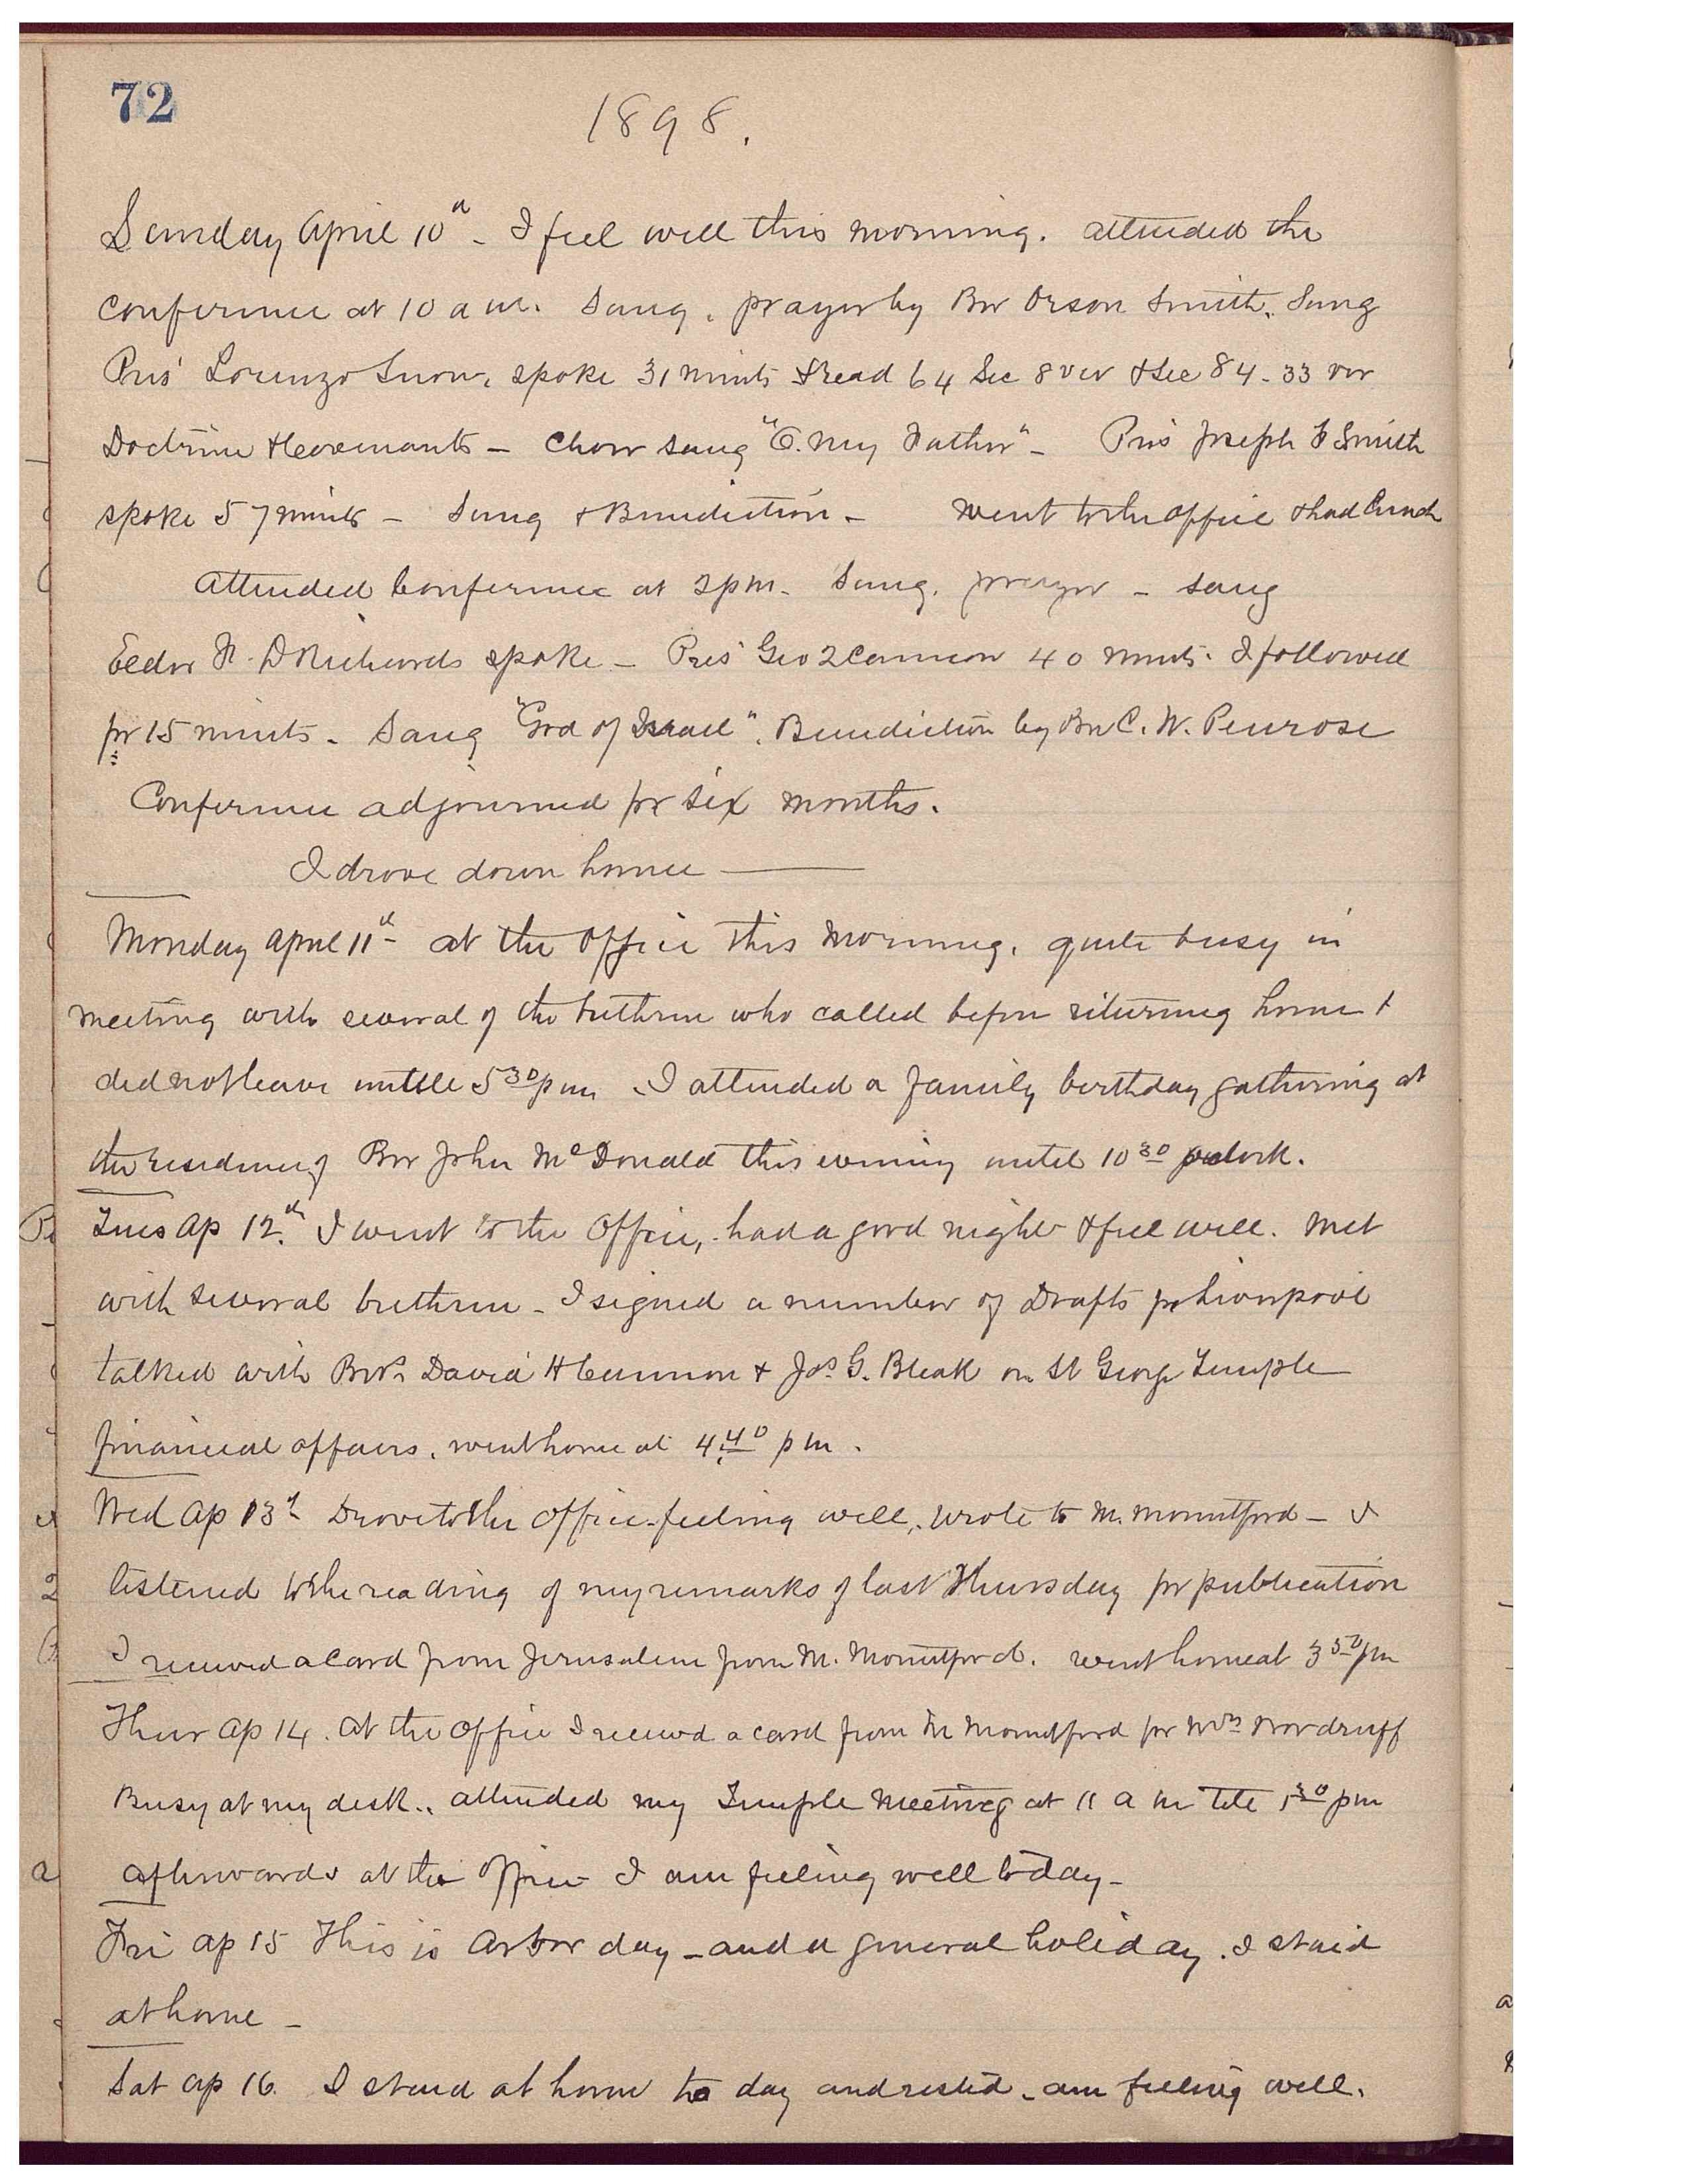 72
1898.
Sunday April 10th - I feel well this morning. attended the
Conference at 10 a m. Sang. prayer by Bro Orson Smith. Sung
Pres' Lorenzo Snow, spoke 31 minuts & read 64 Sec 8 ver & Sec 84 - 33 ver
Doctrine & Covenants - Choir sang "O. My Father" - Pres Joseph F Smith
spoke 57 minuts - Sung & Benediction - went to the office & had lunch
attended Conference at 2 pm. Sung. prayer - sang
Elder F. D Richards spoke - Pres' Geo Q Cannon 40 minuts. I followed
for 15 minuts. Sang "God of Israel". Benediction by Bro C. W. Penrose
Conference adjourned for six months.
I drove down home
Monday April 11th - at the Office this Morning. quite busy in
meeting with several of the brethren who called before returning home &
did not leave untill 5 30 p m I attended a family birthday gathering at
the residence of Bro John McDonald this evening until 10 30 oclock.
Tues Ap 12th. I went to the Office, had a good night & feel well. Met
with several brethren - I signed a number of Drafts for Liverpool
talked with Bros David H Cannon & Jas. G. Bleak on St George Temple
financial affairs. went home at 4.40 p m.
Wed Ap 13th Drove to the office - feeling well, wrote to M. Mountford - I
listened to the reading of my remarks of last Thursday for publication
I received a Card from Jerusalem from M. Mountford. went home at 3 50 pm
Thur Ap 14. At the Office I received a card from M Mountford for Wm Woodruff
Busy at my desk.. attended my Temple Meeting at 11 a m till 1 30 pm
afterwards at the office I am feeling well to day -
Fri Ap 15 This is Arbor day - and a general holiday. I staid
at home -
Sat Ap 16. I staid at home to day and rested - am feeling well.